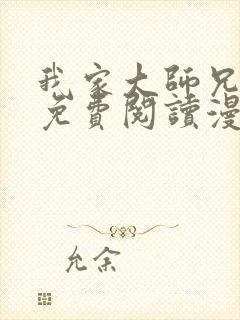 我家大師兄
免費閱讀漫
允余